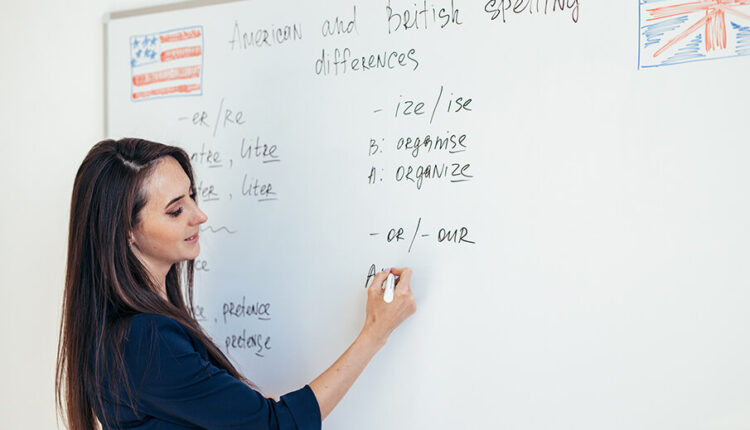 American and British spelling
differences
-er/re
litre
liter
pretence
pretense
-ize/ise
B: organise
A: organize
-or/-our
A